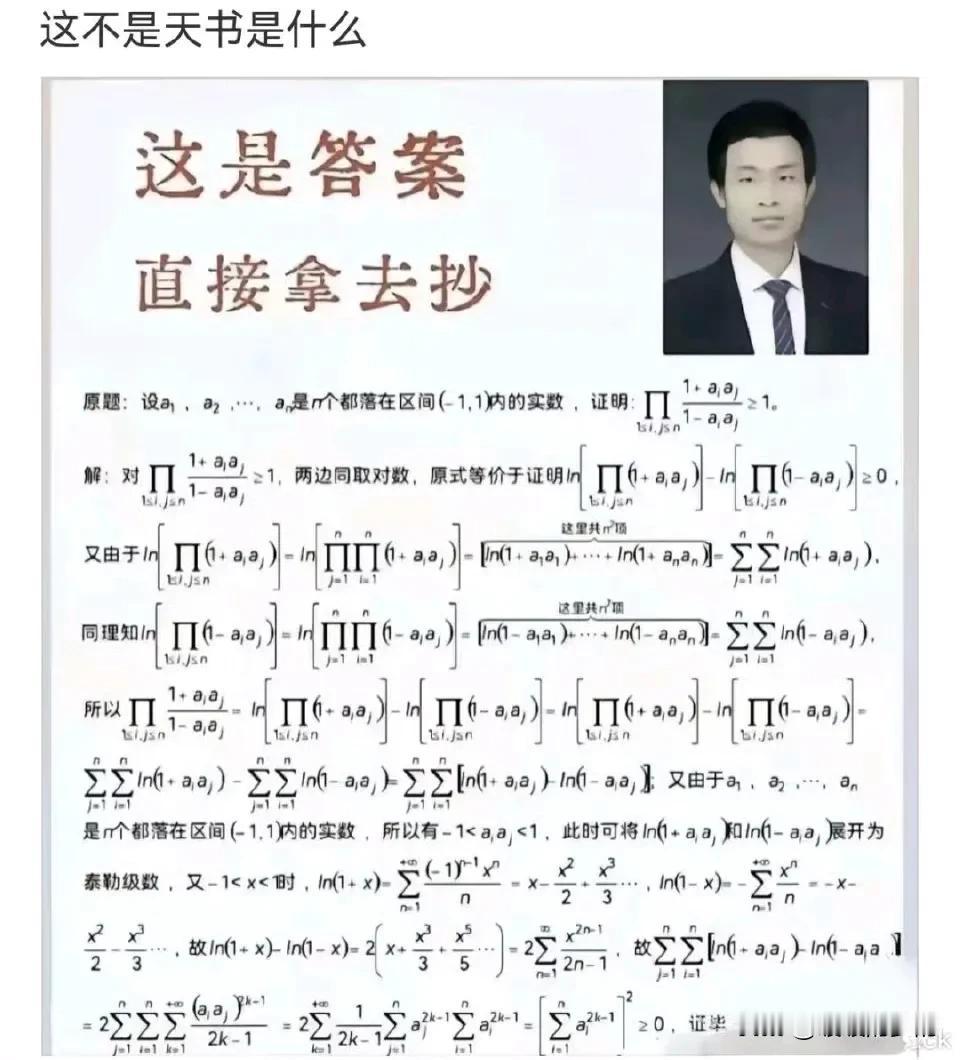 这不是天书是什么
这是答案
直接拿去抄
原题：设a₁，a₂，…，aₙ是n个都落在区间(-1,1)内的实数，证明：∏_{1≤i,j≤n} (1+aᵢaⱼ)/(1-aᵢaⱼ) ≥1。
解：对∏_{1≤i,j≤n} (1+aᵢaⱼ)/(1-aᵢaⱼ) ≥1，两边同取对数，原式等价于证明ln[∏_{1≤i,j≤n}(1+aᵢaⱼ)]-ln[∏_{1≤i,j≤n}(1-aᵢaⱼ)]≥0，
这里共n²项
又由于ln[∏_{1≤i,j≤n}(1+aᵢaⱼ)]=ln[∏_{j=1}^{n}∏_{i=1}^{n}(1+aᵢaⱼ)]=[ln(1+a₁a₁)+…+ln(1+aₙaₙ)]=∑_{j=1}^{n}∑_{i=1}^{n}ln(1+aᵢaⱼ)，
这里共n²项
同理知ln[∏_{1≤i,j≤n}(1-aᵢaⱼ)]=ln[∏_{j=1}^{n}∏_{i=1}^{n}(1-aᵢaⱼ)]=[ln(1-a₁a₁)+…+ln(1-aₙaₙ)]=∑_{j=1}^{n}∑_{i=1}^{n}ln(1-aᵢaⱼ)，
所以∏_{1≤i,j≤n} (1+aᵢaⱼ)/(1-aᵢaⱼ)=ln[∏_{1≤i,j≤n}(1+aᵢaⱼ)]-ln[∏_{1≤i,j≤n}(1-aᵢaⱼ)]=ln[∏_{1≤i,j≤n}(1+aᵢaⱼ)]-ln[∏_{1≤i,j≤n}(1-aᵢaⱼ)]=
∑_{j=1}^{n}∑_{i=1}^{n}ln(1+aᵢaⱼ)-∑_{j=1}^{n}∑_{i=1}^{n}ln(1-aᵢaⱼ)=∑_{j=1}^{n}∑_{i=1}^{n}[ln(1+aᵢaⱼ)-ln(1-aᵢaⱼ)]；又由于a₁，a₂，…，aₙ
是n个都落在区间(-1,1)内的实数，所以有-1<aᵢaⱼ<1，此时可将ln(1+aᵢaⱼ)和ln(1-aᵢaⱼ)展开为
泰勒级数，又-1<x<1时，ln(1+x)=∑_{n=1}^{+∞} (-1)ⁿ⁻¹xⁿ/n = x-x²/2+x³/3…，ln(1-x)=-∑_{n=1}^{+∞} xⁿ/n = -x-
x²/2-x³/3…，故ln(1+x)-ln(1-x)=2(x+x³/3+x⁵/5…)=2∑_{n=1}^{∞} x²ⁿ⁻¹/(2n-1)，故∑_{j=1}^{n}∑_{i=1}^{n}[ln(1+aᵢaⱼ)-ln(1-aᵢa)]
=2∑_{j=1}^{n}∑_{i=1}^{n}∑_{k=1}^{+∞} (aᵢaⱼ)²ᵏ⁻¹/(2k-1) = 2∑_{k=1}^{+∞} 1/(2k-1) ∑_{j=1}^{n}aⱼ²ᵏ⁻¹∑_{i=1}^{n}aᵢ²ᵏ⁻¹=[∑_{i=1}^{n}aᵢ²ᵏ⁻¹]²≥0，证毕